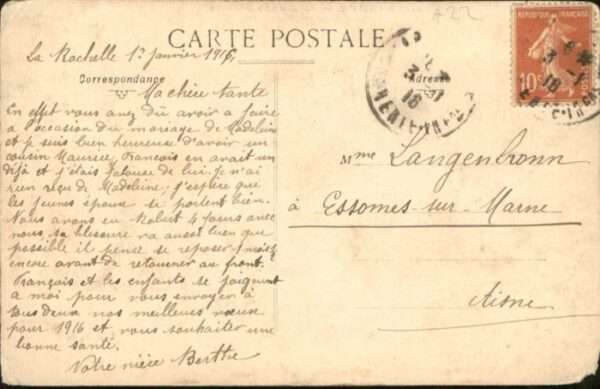 A22
CARTE POSTALE
La Rochelle 1er janvier 1916
Correspondance
Adresse
Ma chère tante
En effet vous avez dû avoir a faire
a l'occasion du mariage de Madeleine
et je suis bien heureuse d'avoir un
cousin Maurice, François en avait un
déjà et j'étais jalouse de lui. Je n'ai
rien reçu de Madeleine; j'espère que
les jeunes époux se portent bien.
Nous avons eu Robert 4 jours avec
nous, sa blessure va aussi bien que
possible il pense se reposer 1 mois
encore avant de retourner au front.
François et les enfants se joignent
a moi pour vous envoyer à
tous deux nos meilleurs vœux
pour 1916 et vous souhaiter une
bonne santé.
Votre nièce Berthe
Mme Langenbronn
à Essomes-sur-Marne
Aisne
REPUBLIQUE FRANÇAISE
10c
POSTES
3
16